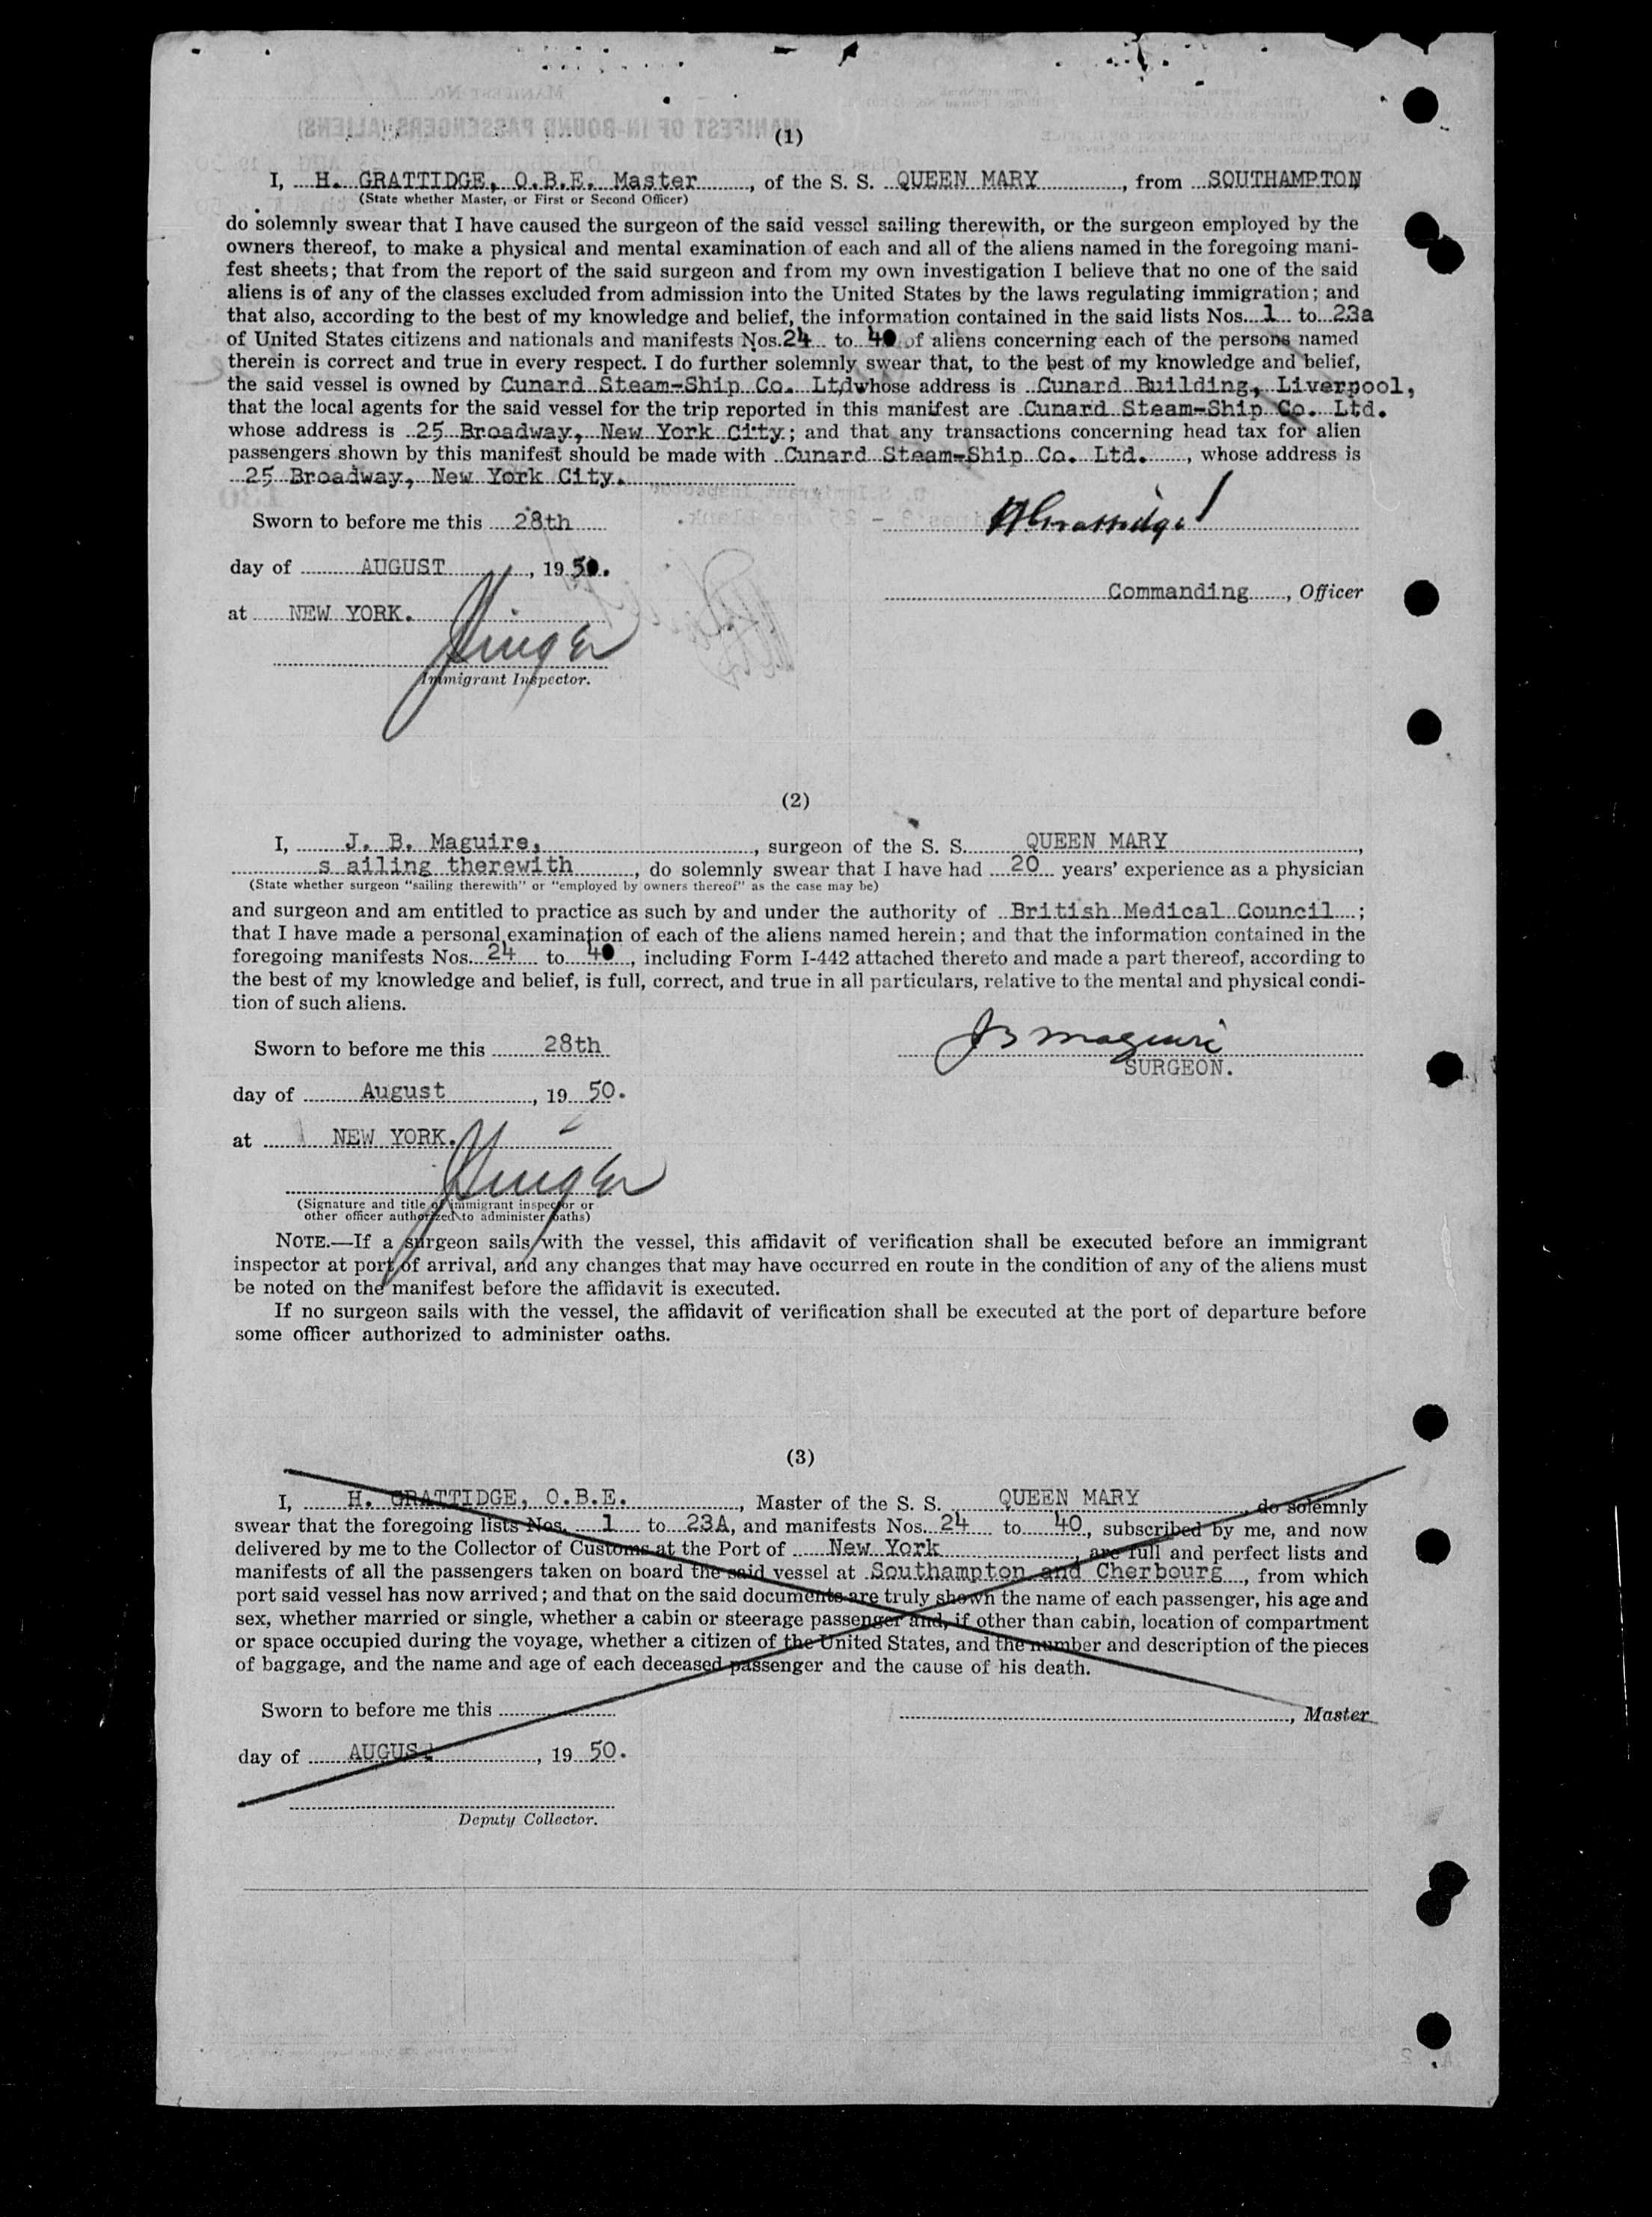 (1)
I, H. GRATTIDGE, O.B.E. Master, of the S. S. QUEEN MARY, from SOUTHAMPTON
(State whether Master, or First or Second Officer)
do solemnly swear that I have caused the surgeon of the said vessel sailing therewith, or the surgeon employed by the
owners thereof, to make a physical and mental examination of each and all of the aliens named in the foregoing mani-
fest sheets; that from the report of the said surgeon and from my own investigation I believe that no one of the said
aliens is of any of the classes excluded from admission into the United States by the laws regulating immigration; and
that also, according to the best of my knowledge and belief, the information contained in the said lists Nos. 1 to 23a
of United States citizens and nationals and manifests Nos. 24 to 40 of aliens concerning each of the persons named
therein is correct and true in every respect. I do further solemnly swear that, to the best of my knowledge and belief,
the said vessel is owned by Cunard Steam-Ship Co. Ltd whose address is Cunard Building, Liverpool,
that the local agents for the said vessel for the trip reported in this manifest are Cunard Steam-Ship Co. Ltd.
whose address is 25 Broadway, New York City; and that any transactions concerning head tax for alien
passengers shown by this manifest should be made with Cunard Steam-Ship Co. Ltd., whose address is
25 Broadway, New York City.
Sworn to before me this 28th
H Grattidge
day of AUGUST, 1950.
Commanding, Officer
at NEW YORK.
Immigrant Inspector.
(2)
I, J. B. Maguire, , surgeon of the S. S. QUEEN MARY,
s ailing therewith, do solemnly swear that I have had 20 years' experience as a physician
(State whether surgeon "sailing therewith" or "employed by owners thereof" as the case may be)
and surgeon and am entitled to practice as such by and under the authority of British Medical Council;
that I have made a personal examination of each of the aliens named herein; and that the information contained in the
foregoing manifests Nos. 24 to 40, including Form I-442 attached thereto and made a part thereof, according to
the best of my knowledge and belief, is full, correct, and true in all particulars, relative to the mental and physical condi-
tion of such aliens.
Sworn to before me this 28th
J B Maguire
SURGEON.
day of August, 19 50.
at NEW YORK.
(Signature and title of immigrant inspector or
other officer authorized to administer oaths)
NOTE.—If a surgeon sails with the vessel, this affidavit of verification shall be executed before an immigrant
inspector at port of arrival, and any changes that may have occurred en route in the condition of any of the aliens must
be noted on the manifest before the affidavit is executed.
If no surgeon sails with the vessel, the affidavit of verification shall be executed at the port of departure before
some officer authorized to administer oaths.
(3)
I, H. GRATTIDGE, O.B.E., Master of the S. S. QUEEN MARY, do solemnly
swear that the foregoing lists Nos. 1 to 23A, and manifests Nos. 24 to 40, subscribed by me, and now
delivered by me to the Collector of Customs at the Port of New York, are full and perfect lists and
manifests of all the passengers taken on board the said vessel at Southampton and Cherbourg, from which
port said vessel has now arrived; and that on the said documents are truly shown the name of each passenger, his age and
sex, whether married or single, whether a cabin or steerage passenger and, if other than cabin, location of compartment
or space occupied during the voyage, whether a citizen of the United States, and the number and description of the pieces
of baggage, and the name and age of each deceased passenger and the cause of his death.
Sworn to before me this
, Master
day of AUGUST, 19 50.
Deputy Collector.